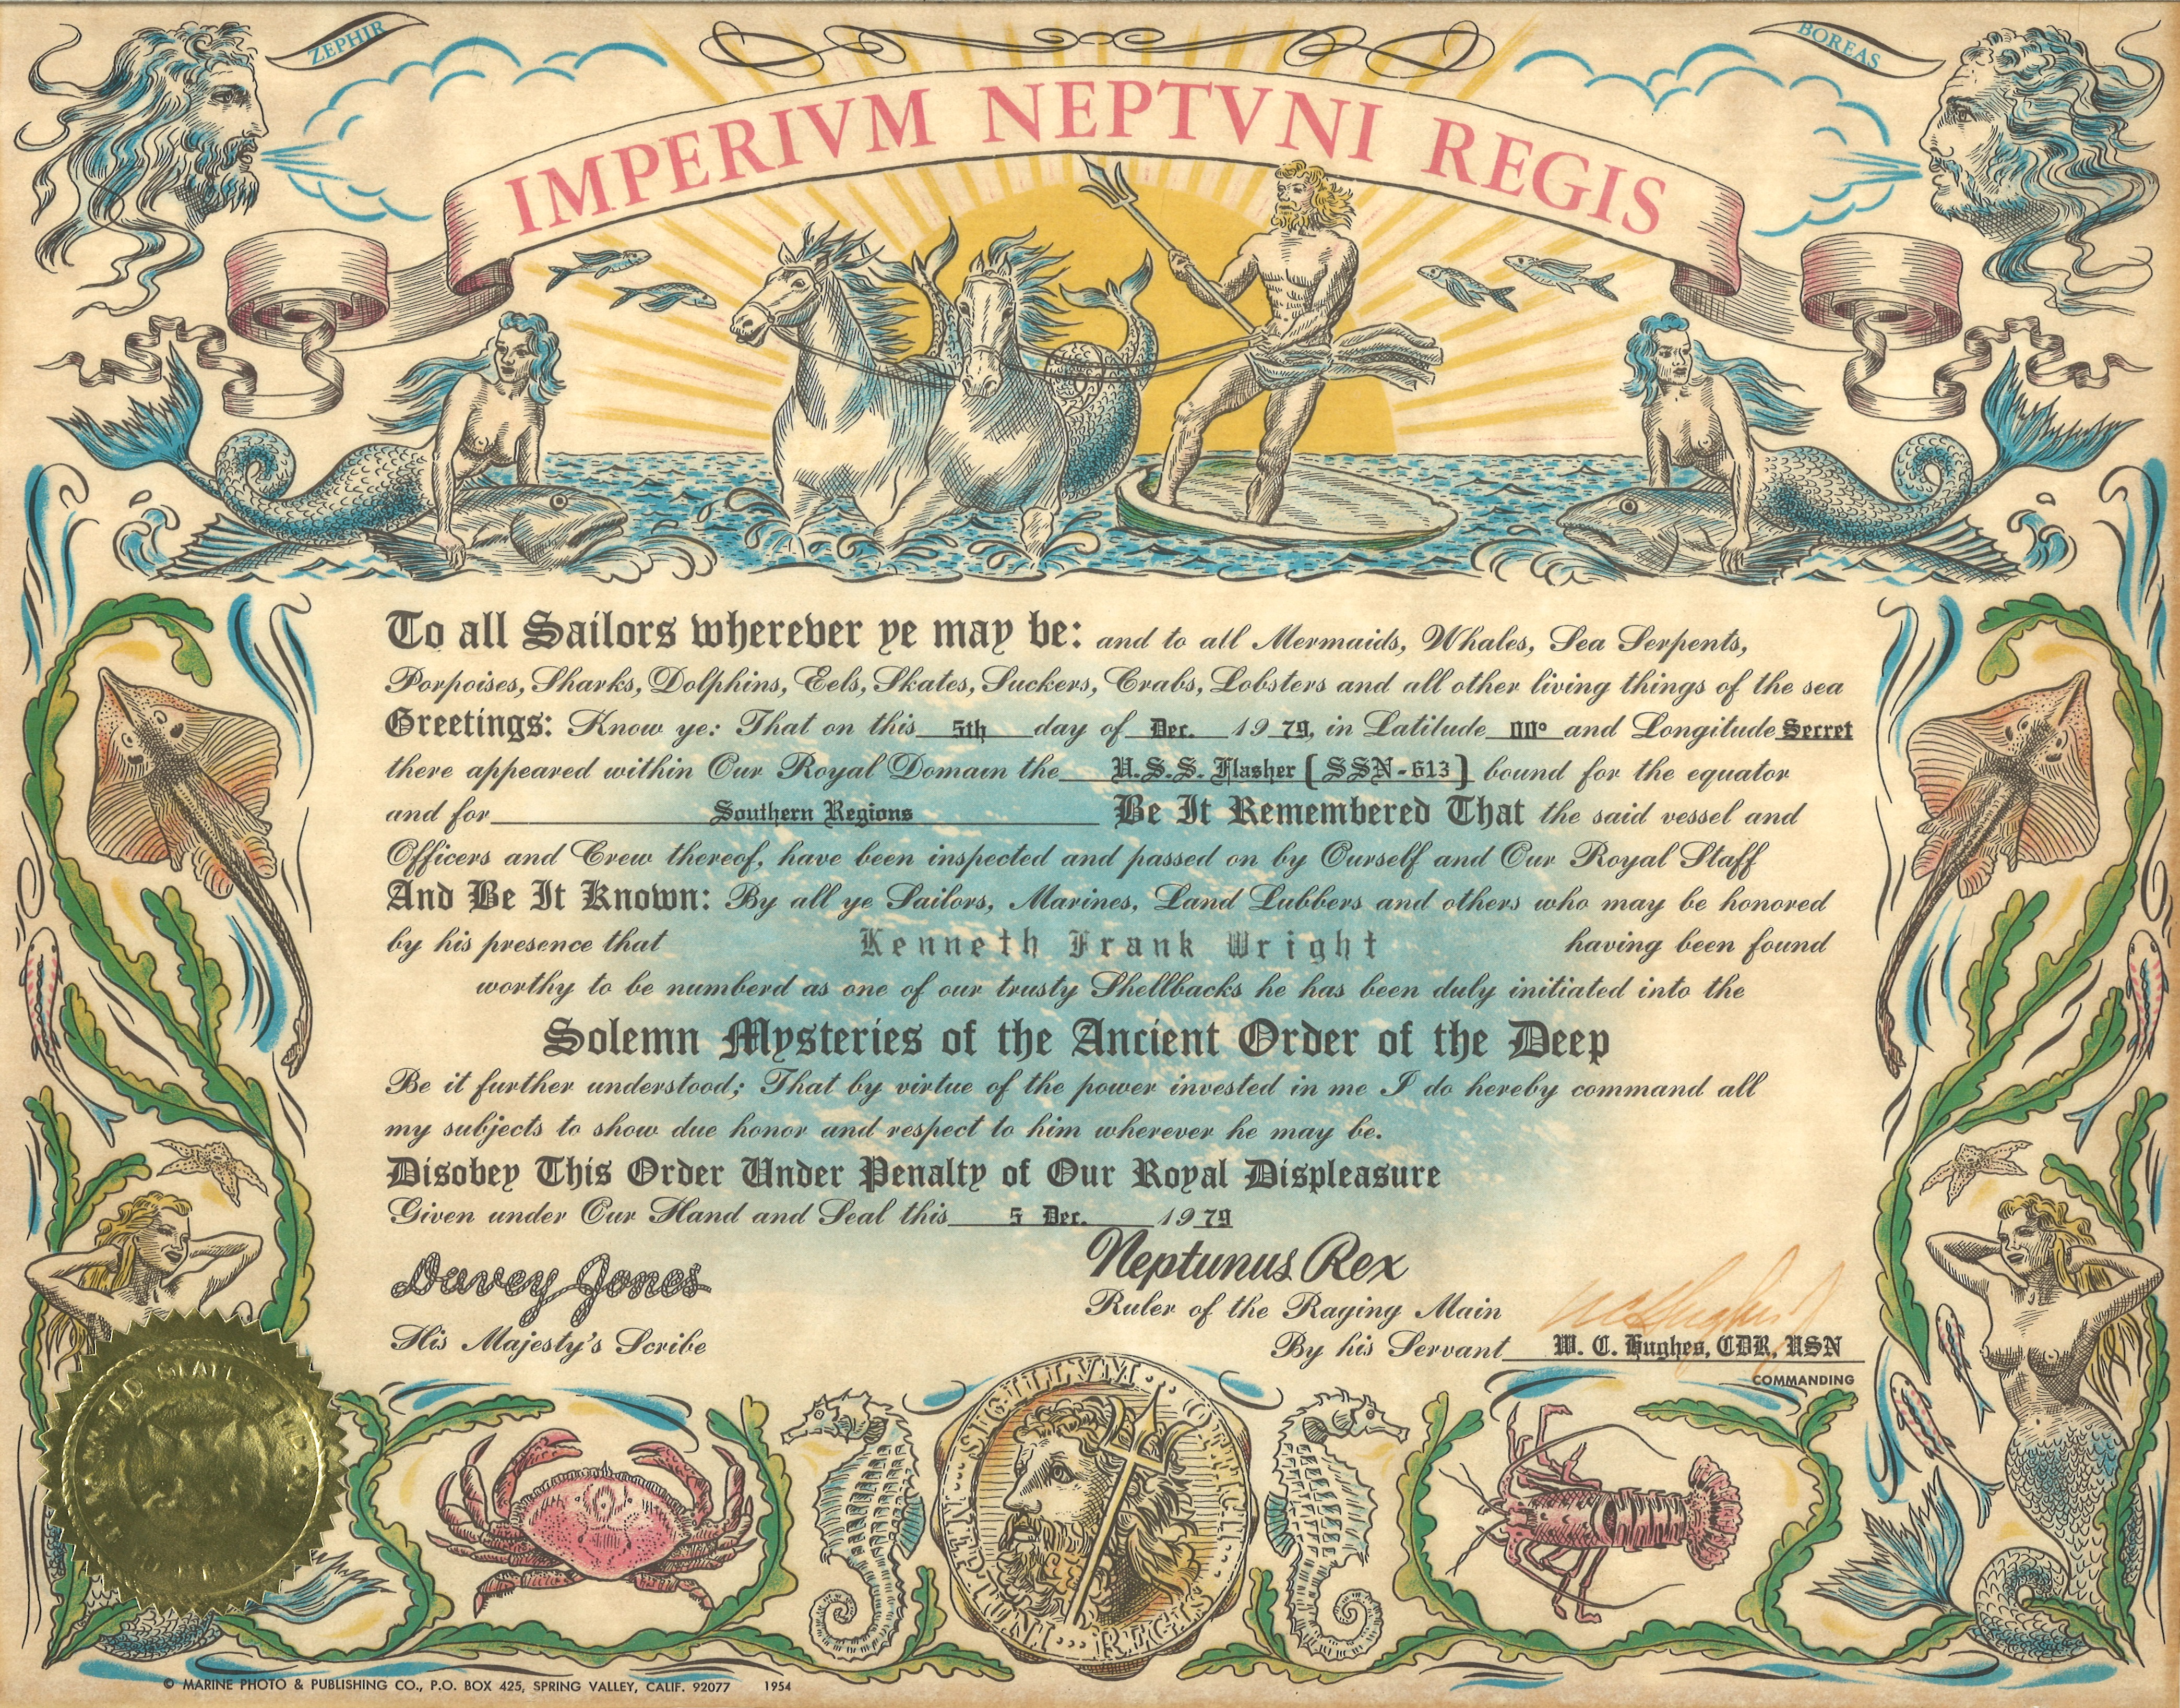 ZEPHIR
BOREAS
IMPERIVM NEPTVNI REGIS
To all Sailors wherever ye may be: and to all Mermaids, Whales, Sea Serpents,
Porpoises, Sharks, Dolphins, Eels, Skates, Suckers, Crabs, Lobsters and all other living things of the sea
Greetings: Know ye: That on this 5th day of Dec. 1979, in Latitude 00° and Longitude Secret
there appeared within Our Royal Domain the U.S.S. Flasher [SSN-613] bound for the equator
and for Southern Regions Be It Remembered That the said vessel and
Officers and Crew thereof, have been inspected and passed on by Ourself and Our Royal Staff
And Be It Known: By all ye Sailors, Marines, Land Lubbers and others who may be honored
by his presence that Kenneth Frank Wright having been found
worthy to be numberd as one of our trusty Shellbacks he has been duly initiated into the
Solemn Mysteries of the Ancient Order of the Deep
Be it further understood; That by virtue of the power invested in me I do hereby command all
my subjects to show due honor and respect to him wherever he may be.
Disobey This Order Under Penalty of Our Royal Displeasure
Given under Our Hand and Seal this 5 Dec. 1979
Davey Jones
His Majesty's Scribe
Neptunus Rex
Ruler of the Raging Main
By his Servant W. C. Hughes, CDR, USN
COMMANDING
SIGILLVM
NEPTUNI REGIS
© MARINE PHOTO & PUBLISHING CO., P.O. BOX 425, SPRING VALLEY, CALIF. 92077 1954